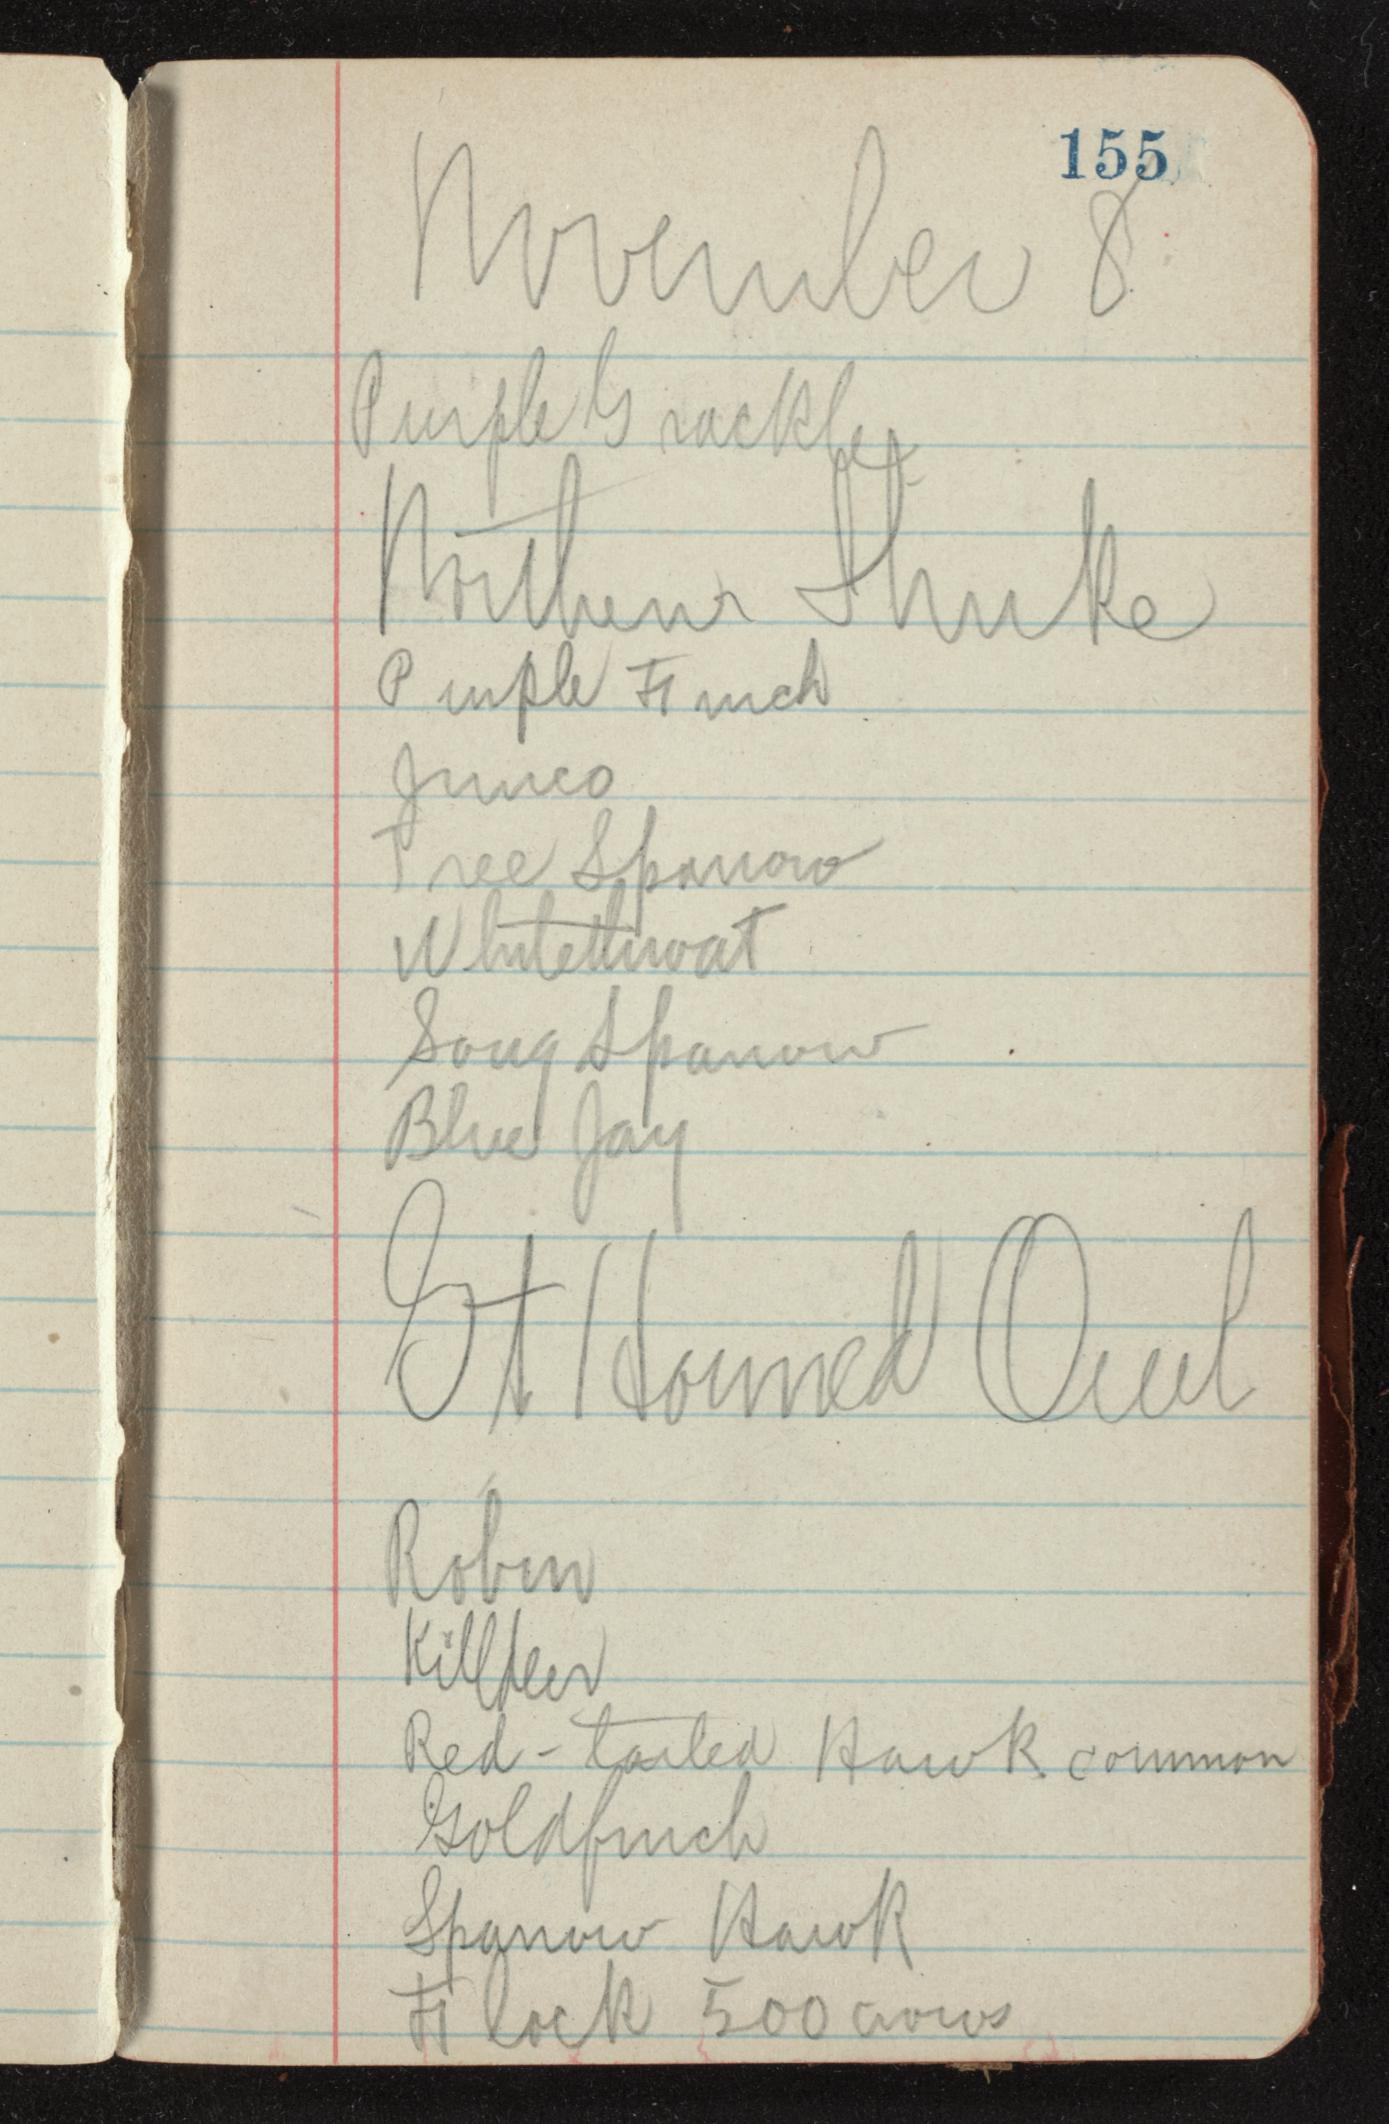 155
November 8
Purple Grackle
Northern Shrike
Purple Finch
Junco
Tree Sparrow
Whitethroat
Song Sparrow
Blue Jay
Gt Horned Owl
Robin
Killdeer
Red-tailed Hawk common
Goldfinch
Sparrow Hawk
Flock 500 crows